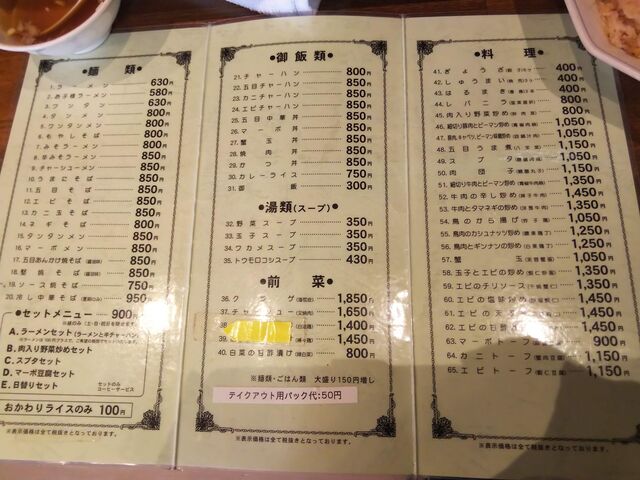 ●麺 類●
1. ラーメン 630円
2. お子様ラーメン 580円
3. ワンタン 630円
4. タンメン 800円
5. ワンタンメン 800円
6. もやしそば 800円
7. みそラーメン 800円
8. 辛みそラーメン 850円
9. チャーシューメン 850円
10. うまにそば 850円
11. 五目そば 850円
12. エビそば 850円
13. カニ玉そば 850円
14. ネギそば 800円
15. タンタンメン 950円
16. マーボーメン 850円
17. 五目あんかけ焼そば 850円
18. 堅焼そば 850円
19. ソース焼そば 750円
20. 冷し中華そば 950円
●セットメニュー 900円
A. ラーメンセット
B. 肉入り野菜炒めセット
C. スブタセット
D. マーボ豆腐セット
E. 日替りセット
セットのみ
コーヒーサービス
おかわりライスのみ 100円
※表示価格は全て税抜きとなっております。
●御飯類●
21. チャーハン 800円
22. 五目チャーハン 850円
23. カニチャーハン 850円
24. エビチャーハン 850円
25. 五目中華丼 850円
26. マーボ丼 850円
27. 蟹玉丼 850円
28. 焼肉丼 850円
29. かつ丼 850円
30. カレーライス 750円
31. 御飯 300円
●湯類(スープ)●
32. 野菜スープ 350円
33. 玉子スープ 350円
34. ワカメスープ 350円
35. トウモロコシスープ 430円
●前 菜●
36. クラゲ 1,850円
37. チャーシュー 1,650円
38 1,400円
1,450円
40. 白菜の甘酢漬け 800円
※麺類・ごはん類 大盛り150円増し
テイクアウト用パック代:50円
※表示価格は全て税抜きとなっております。
●料 理●
41. ぎょうざ 400円
42. しゅうまい 400円
43. はるまき 400円
44. レバニラ 800円
45. 肉入り野菜炒め 800円
46. 細切り豚肉とピーマン炒め 1,050円
47. 豚肉、キャベツ、ピーマン味噌炒め 1,050円
48. 五目うま煮 1,150円
49. スブタ 1,050円
50. 肉団子 1,150円
51. 細切り牛肉とピーマン炒め 1,150円
52. 牛肉の辛し炒め 1,450円
53. 牛肉とタマネギの炒め 1,350円
54. 鳥のから揚げ 1,050円
55. 鳥肉のカシュナッツ炒め 1,250円
56. 鳥肉とギンナンの炒め 1,250円
57. 蟹玉 1,150円
58. 玉子とエビの炒め 1,350円
59. エビのチリソース 1,350円
60. エビの塩味炒め 1,450円
61. エビの天 1,450円
62. エビの甘酢炒め 1,450円
63. マーボトーフ 900円
64. カニトーフ 1,150円
65. エビトーフ 1,150円
※表示価格は全て税抜きとなっております。